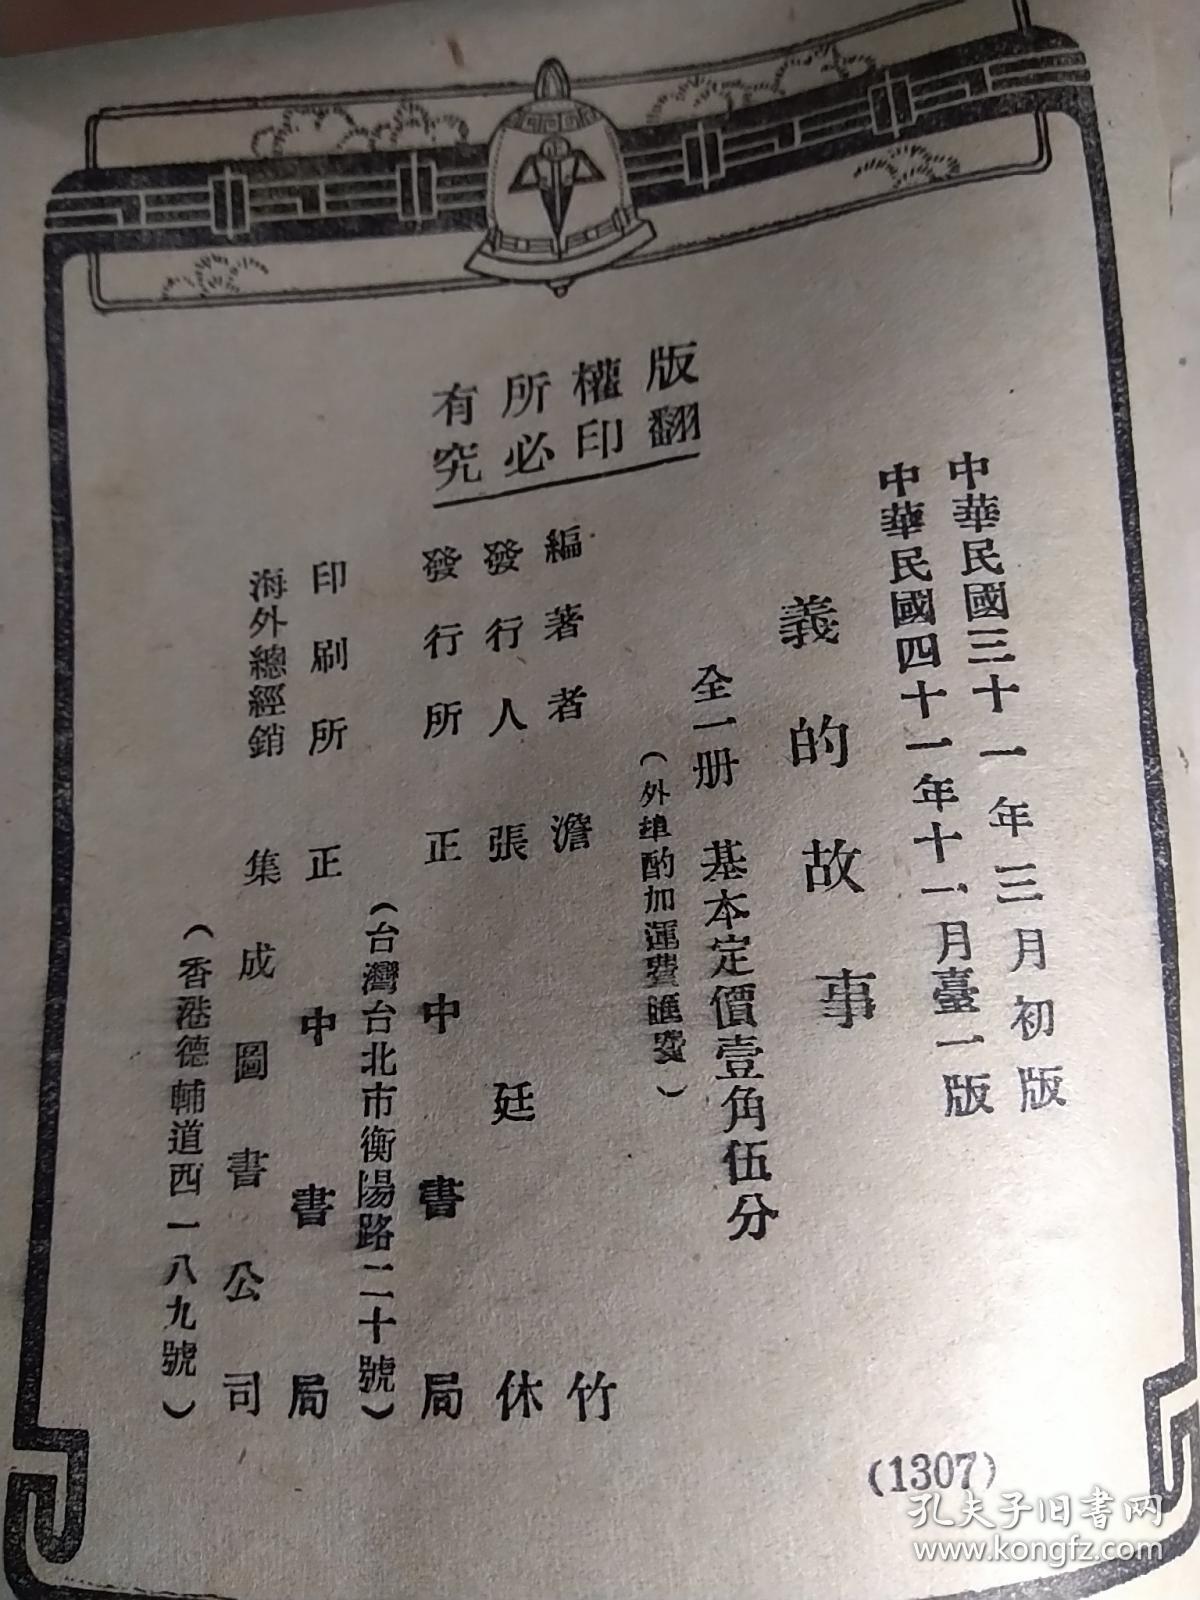 中華民國三十一年三月初版
中華民國四十一年十一月臺一版
義的故事
全一册 基本定價壹角伍分
(外埠酌加運費匯費)
版權所有
翻印必究
編著者 澹竹
發行人 張廷休
發行所 正中書局
(台灣台北市衡陽路二十號)
印刷所 正中書局
海外總經銷 集成圖書公司
(香港德輔道西一八九號)
(1307)
孔夫子旧书网
www.kongfz.com